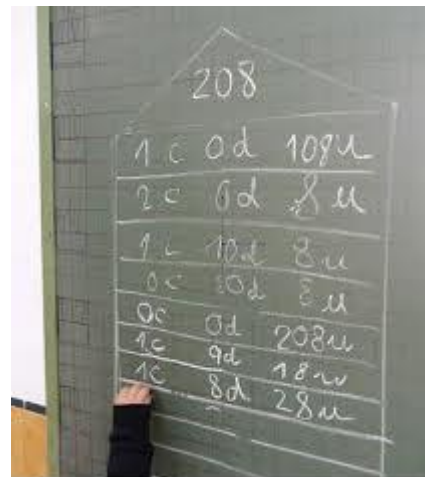 208
1 c 0d 108u
2 c 0d 8 u
1 c 10d 8 u
0 c 20d 8 u
0c 0d 208u
1c 9d 18 u
1C 8d 28u